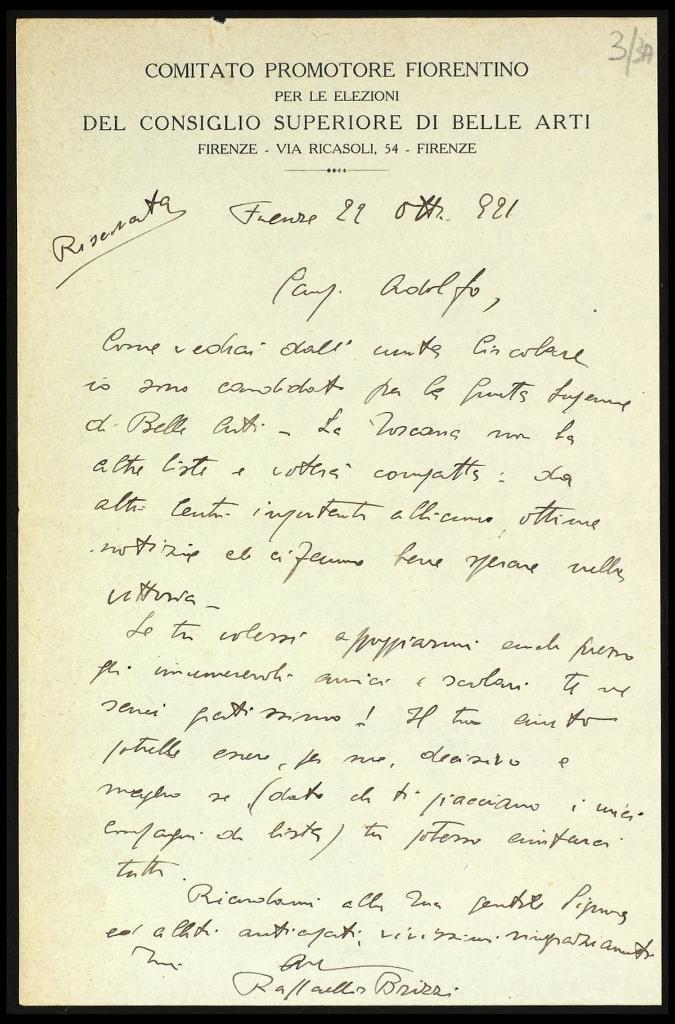 3/3A
COMITATO PROMOTORE FIORENTINO
PER LE ELEZIONI
DEL CONSIGLIO SUPERIORE DI BELLE ARTI
FIRENZE - VIA RICASOLI, 54 - FIRENZE
Riservata
Firenze 22 Ott. 921
Adolfo,
Come vedrai dall' unita Circolare
io sono candidato per la Giunta Superiore
di Belle Arti - La Toscana non ha
altre liste e voterà compatta: da
altri Centri importanti abbiamo ottime
notizie che ci fanno bene sperare nella
vittoria -
Se tu volessi appoggiarmi anche presso
gli innumerevoli amici e scolari te ne
sarei gratissimo! Il tuo aiuto
potrebbe essere, per me, decisivo e
meglio se (dato che ti piacciano i miei
compagni di lista) tu potessi aiutarci
tutti.
Ricordami alla Tua gentile Signora
ed abbiti anticipati, vivissimi ringraziamenti
Tuo
Raffaello Brizzi